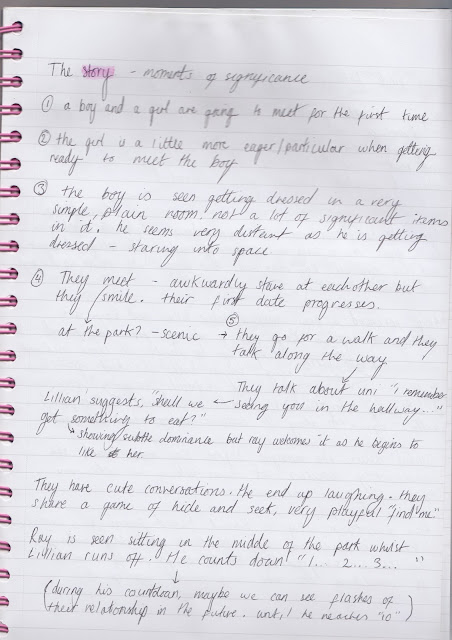 The story - moments of significance
① a boy and a girl are going to meet for the first time
② the girl is a little more eager/particular when getting
ready to meet the boy
③ the boy is seen getting dressed in a very
simple, plain room. not a lot of significant items
in it. he seems very distant as he is getting
dressed - staring into space
④ They meet - awkwardly stare at eachother but
they smile. their first date progresses.
at the park? - scenic → ⑤ they go for a walk and they
talk along the way
They talk about uni "i remember
seeing you in the hallway..."
Lillian suggests, "shall we
get something to eat?"
showing subtle dominance but ray welcomes it as he begins to
like her.
They have cute conversations. the end up laughing. they
share a game of hide and seek, very playful "find me"
Ray is seen sitting in the middle of the park whilst
Lillian runs off. He counts down "1... 2... 3... "
(during his countdown, maybe we can see flashes of
their relationship in the future. until he reaches "10")